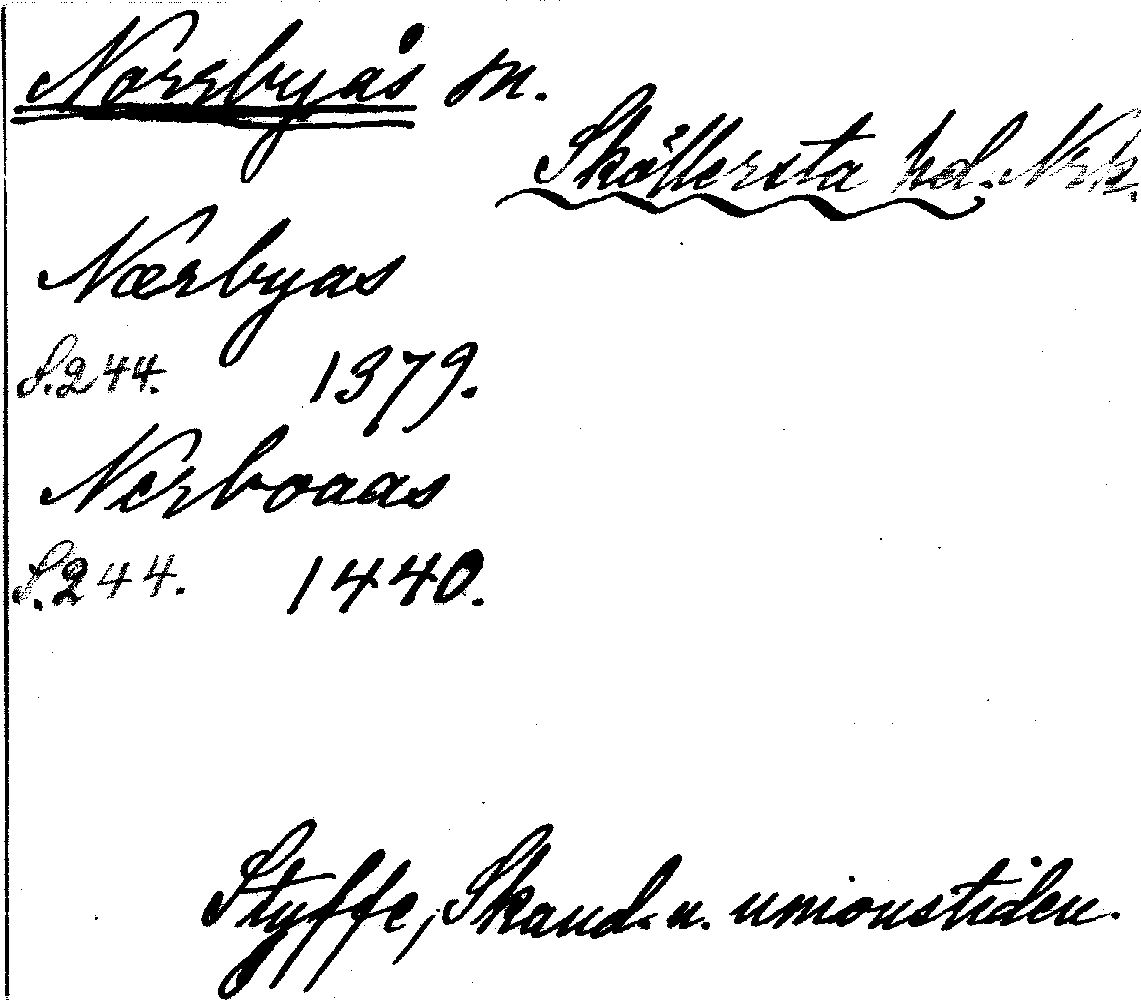 Norrbyås sn.
Sköllersta hd. Nrk.
Nærbyas
S. 244. 1379.
Nerboaas
S. 244. 1440.
Styffe, Skand. u. unionstiden.